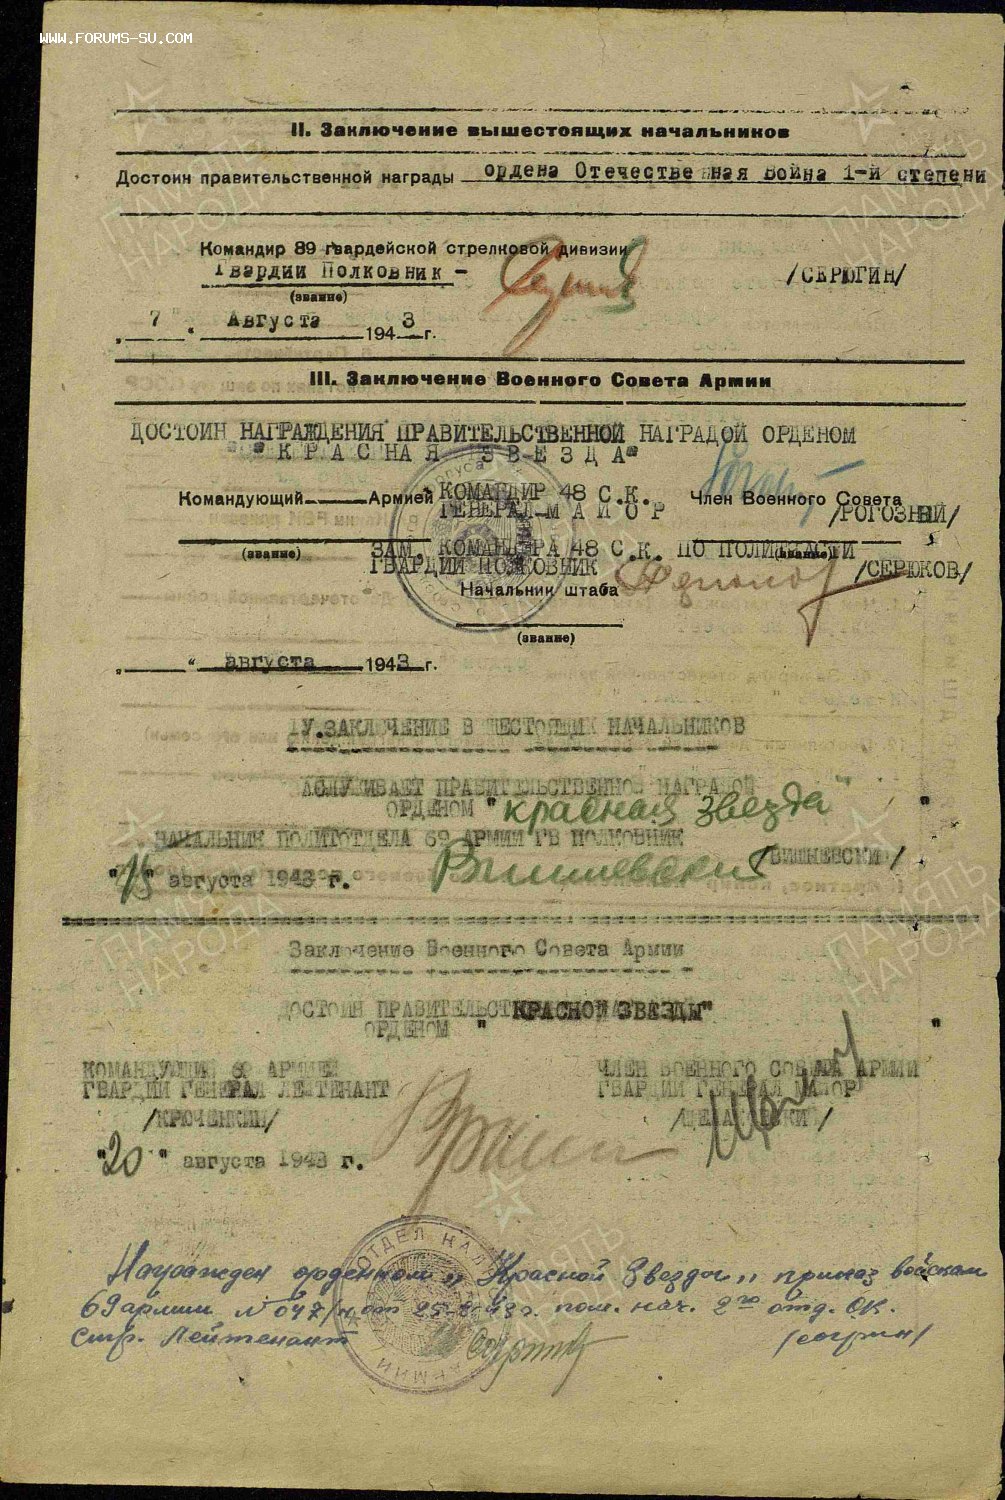 WWW.FORUMS-SU.COM
II. Заключение вышестоящих начальников
Достоин правительственной награды ордена Отечественная Война 1-й степени
Командир 89 гвардейской стрелковой дивизии
Гвардии Полковник - /СЕРЮГИН/
(звание)
„ 7 “ Августа 1943 г.
III. Заключение Военного Совета Армии
ДОСТОИН НАГРАЖДЕНИЯ ПРАВИТЕЛЬСТВЕННОЙ НАГРАДОЙ ОРДЕНОМ
"КРАСНАЯ ЗВЕЗДА"
Командующий Армией КОМАНДИР 48 С.К. Член Военного Совета
ГЕНЕРАЛ-МАЙОР /РОГОЗНЫЙ/
(звание) (звание)
ЗАМ. КОМАНДИРА 48 С.К. ПО ПОЛИТЧАСТИ
ГВАРДИИ ПОЛКОВНИК /СЕРЮКОВ/
Начальник штаба
(звание)
„ “ августа 1943 г.
1У.ЗАКЛЮЧЕНИЕ В ШЕСТОЯЩИХ НАЧАЛЬНИКОВ
АСЛУЖИВАЕТ ПРАВИТЕЛЬСТВЕННОЙ НАГРАДОЙ
ОРДЕНОМ "красная звезда"
НАЧАЛЬНИК ПОЛИТОТДЕЛА 69 АРМИИ ГВ ПОЛКОВНИК
Вишневский /ВИШНЕВСКИ /
"15" августа 1943 г.
Заключение Военного Совета Армии
ДОСТОИН ПРАВИТЕЛЬСТ
ОРДЕНОМ " КРАСНОЙ ЗВЕЗДЫ"
КОМАНДУЮЩИЙ 69 АРМИЕЙ ЧЛЕН ВОЕННОГО СОВЕТА АРМИИ
ГВАРДИИ ГЕНЕРАЛ ЛЕЙТЕНАНТ ГВАРДИИ ГЕНЕРАЛ МАЙОР
/КРЮЧЕНКИН/ /ЩЕЛАКОВСКИЙ/
"20" августа 1943 г.
ОТДЕЛ
АРМИИ
Награжден орденом „Красной Звезды„ приказ войскам
69 армии № 047/н от 25-8-43 г. пом. нач. 2го отд. ОК.
Стр. Лейтенант
ПАМЯТЬ НАРОДА
ПАМЯТЬ НАРОДА
ПАМЯТЬ НАРОДА
ПАМЯТЬ НАРОДА
ПАМЯТЬ НАРОДА